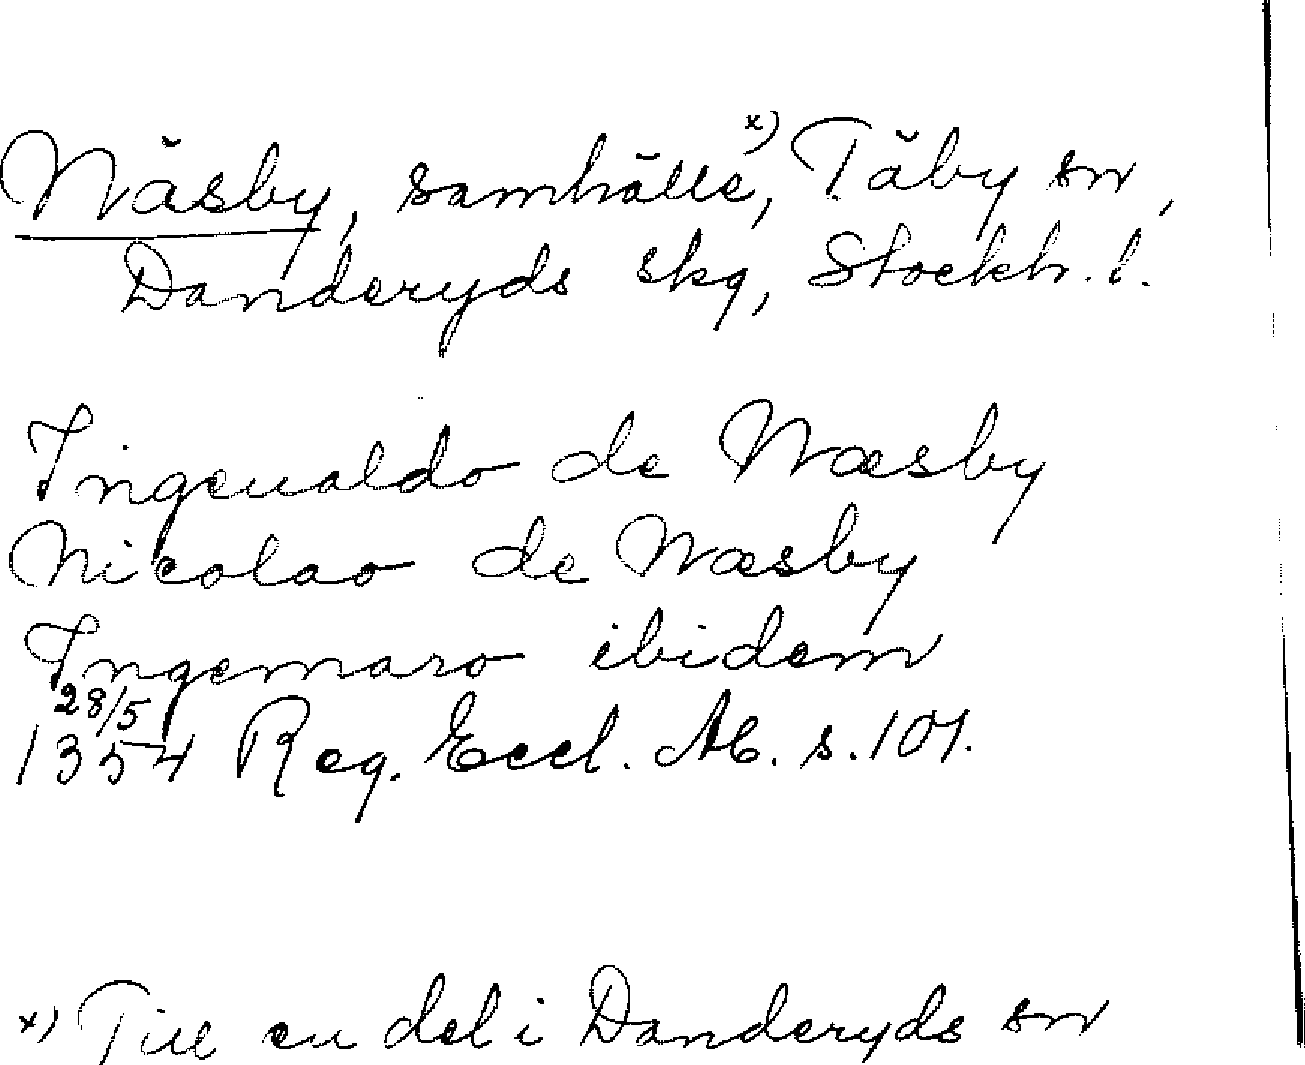 Näsby, samhälle, x) Täby sn,
Danderyds skg, Stockh. l.
Ingeualdo de Næsby
Nicolao de Næsby
Ingemaro ibidem
28/5
1354 Reg. Eccl. Ab. s. 101.
x) Till en del i Danderyds sn